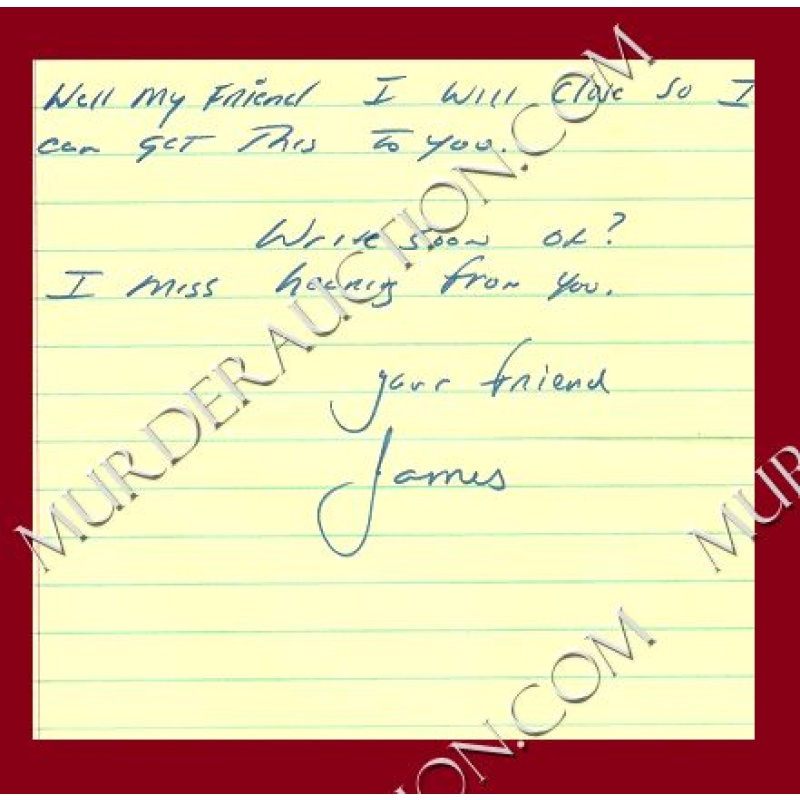 Well My Friend I Will Close So I
can GET This To you.
Write soon ok?
I Miss hearing from you.
your friend
James
MURDERAUCTION.COM
MUR
ON.COM